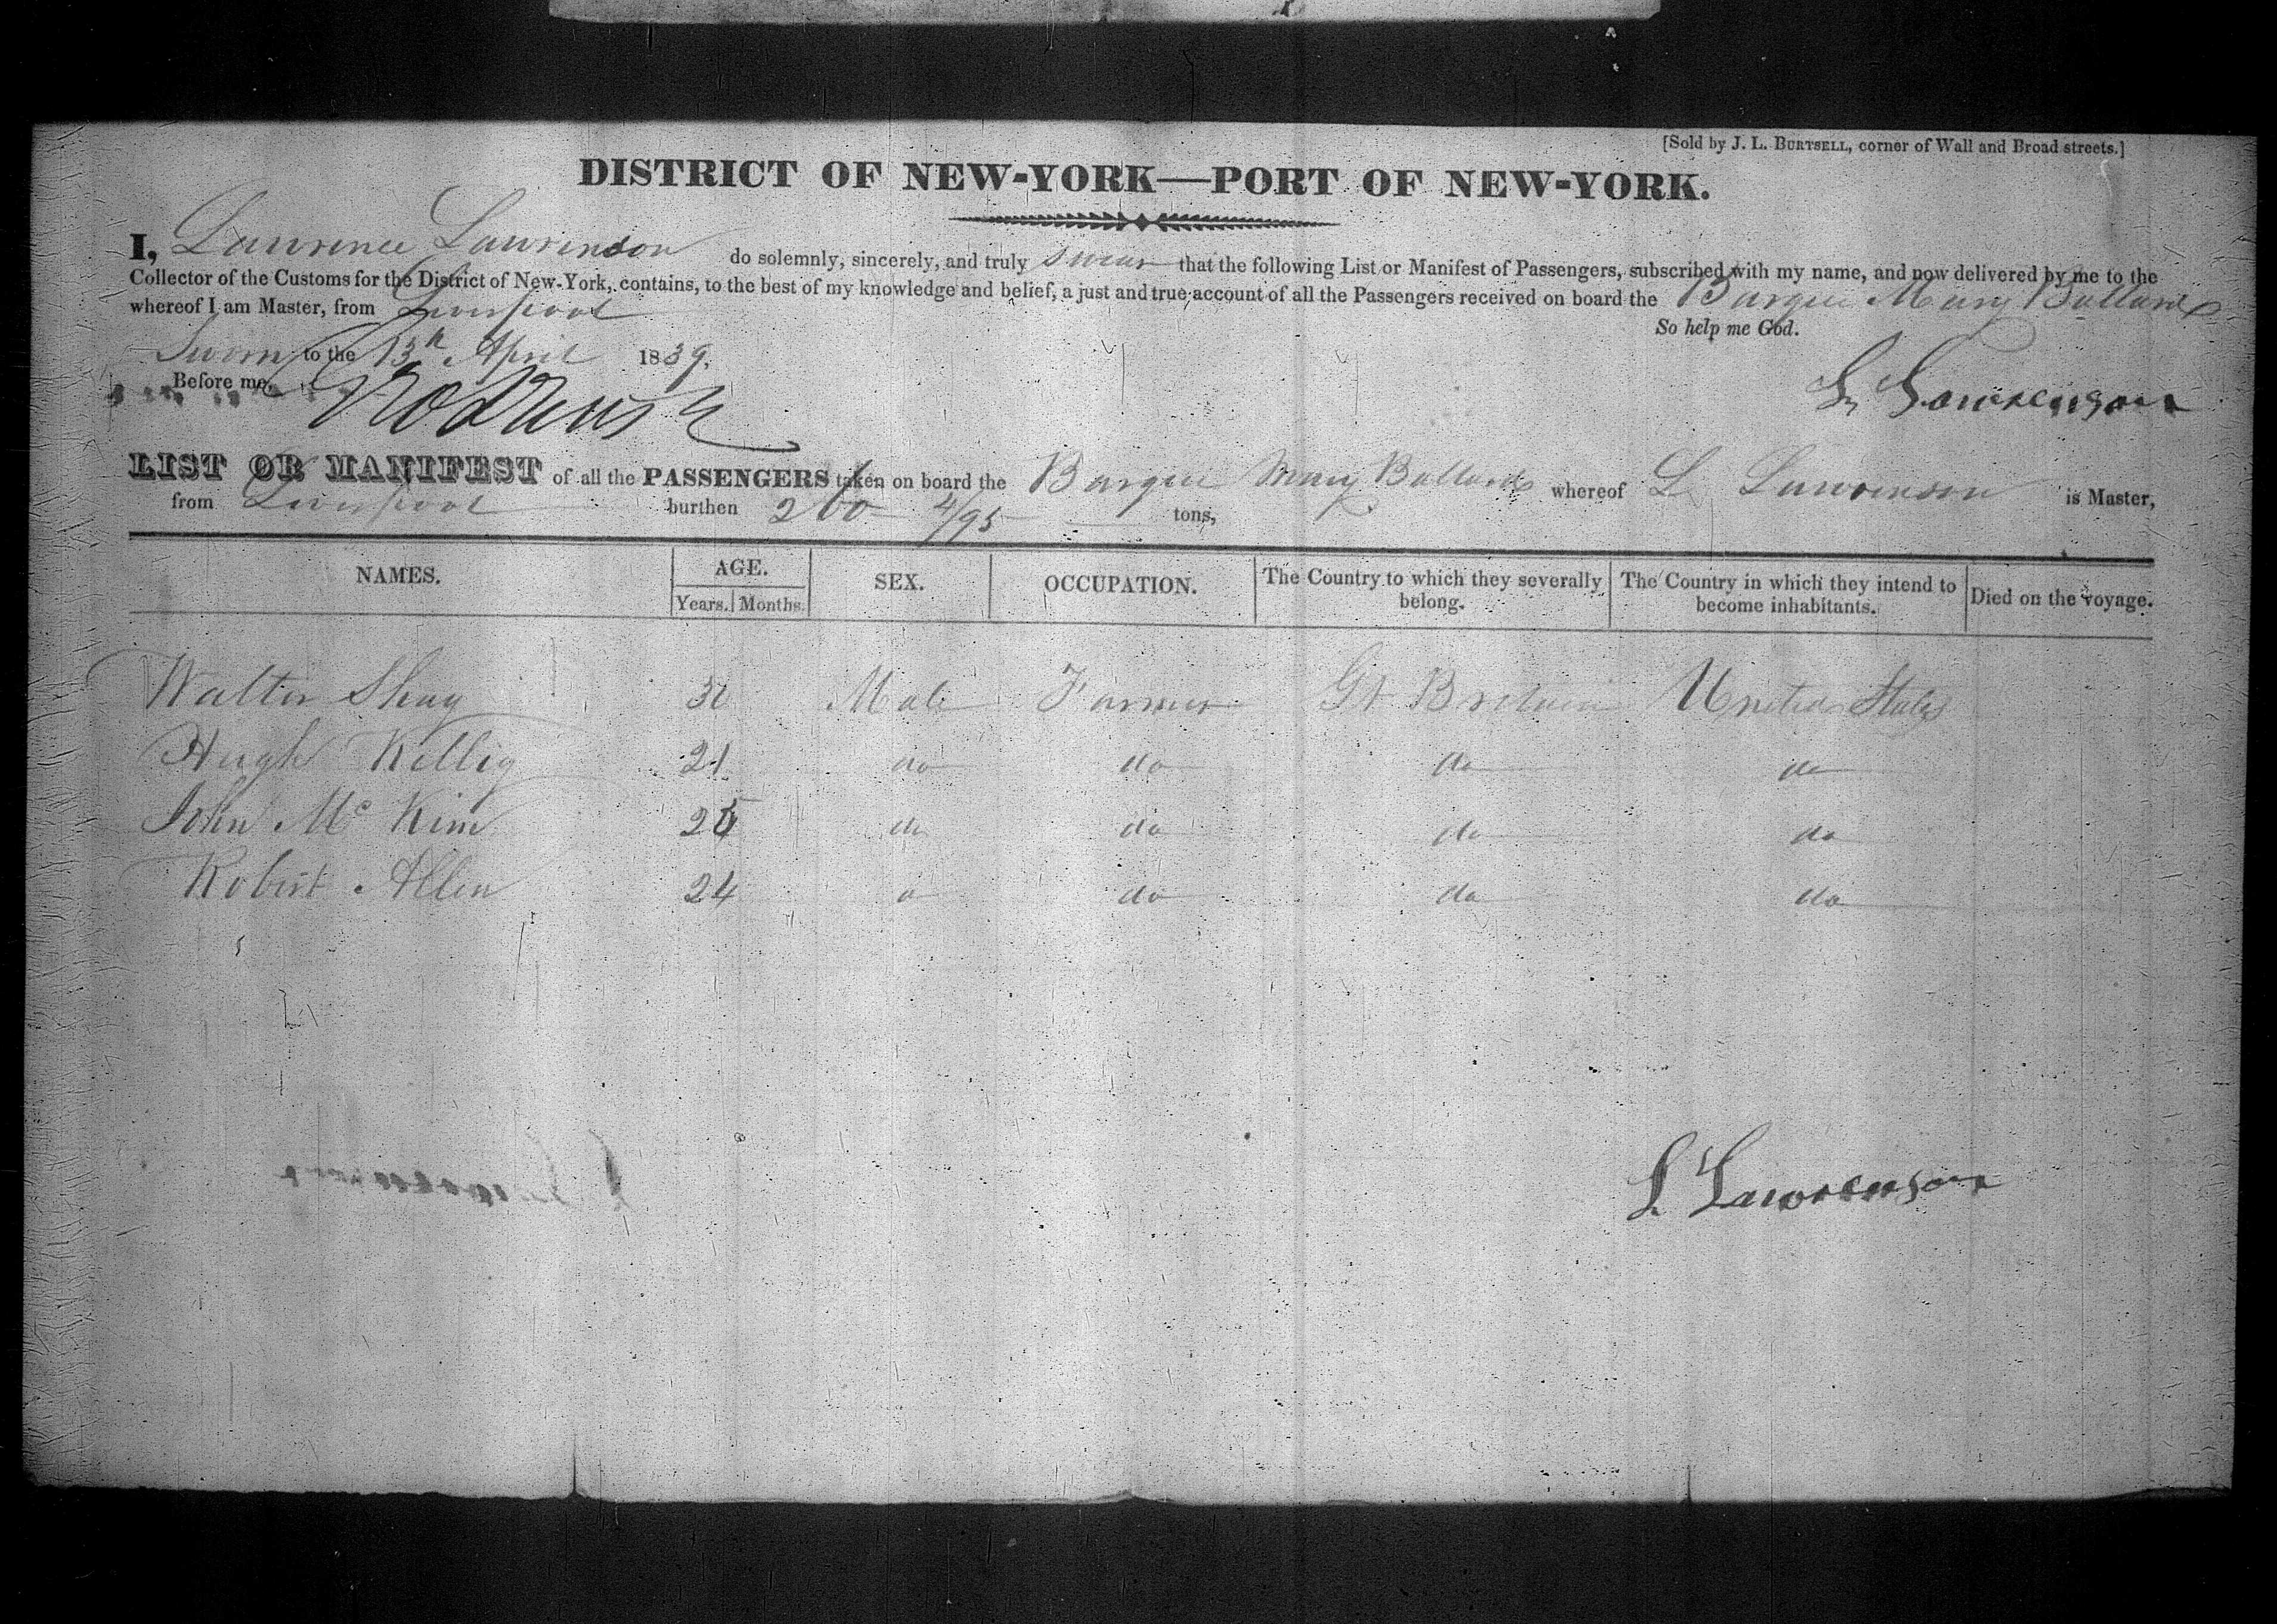 [Sold by J. L. BURTSELL, corner of Wall and Broad streets.]
DISTRICT OF NEW-YORK—PORT OF NEW-YORK.
I, Lawrence Lawrenson do solemnly, sincerely, and truly swear that the following List or Manifest of Passengers, subscribed with my name, and now delivered by me to the
Collector of the Customs for the District of New-York, contains, to the best of my knowledge and belief, a just and true account of all the Passengers received on board the Barque Mary Ballard
whereof I am Master, from Liverpool
So help me God.
Sworn to the 13th April 1839.
Before me,
L Lawrenson
LIST OR MANIFEST of all the PASSENGERS taken on board the Barque Mary Ballard whereof L Lawrenson is Master,
from Liverpool burthen 260 4/95 tons,
NAMES. AGE. SEX. OCCUPATION. The Country to which they severally belong. The Country in which they intend to become inhabitants. Died on the voyage.
Years. Months.
Walter Shay 30 Male Farmer Gt Britain United States
Hugh Kellig 21 do do do do
John Mc Kim 25 do do do do
Robert Allen 24 do do do do
L. Lawrenson